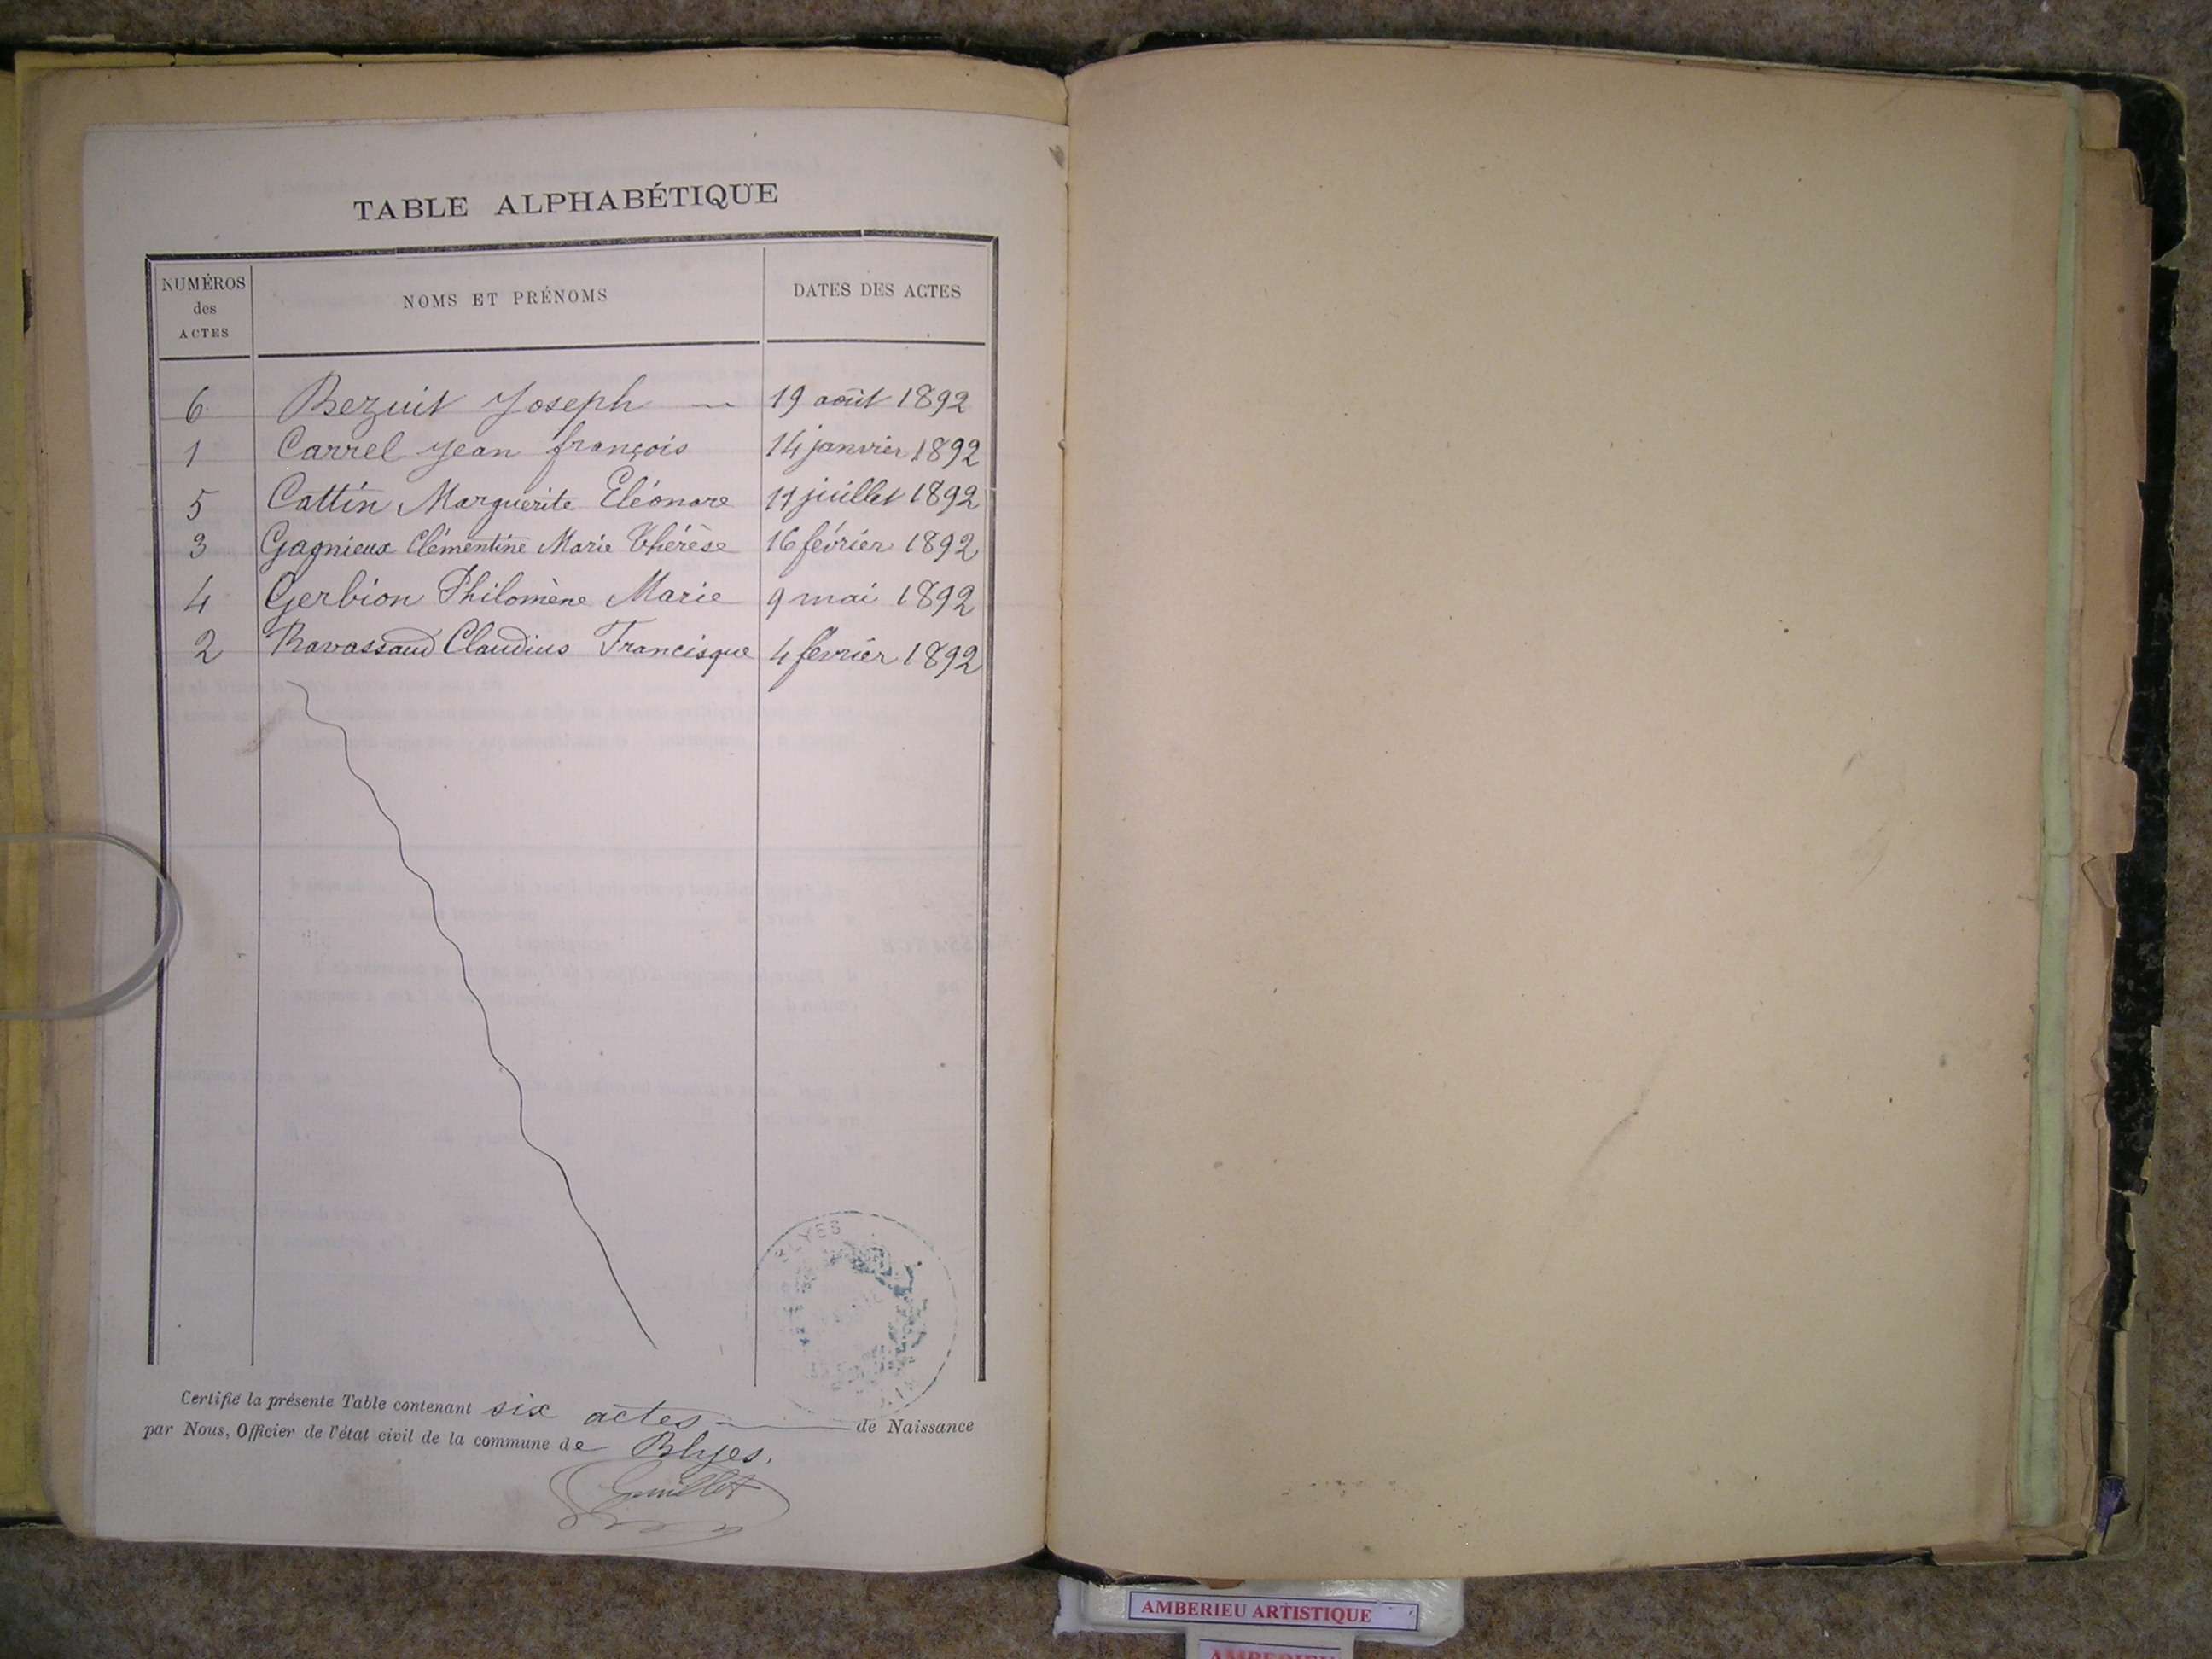 TABLE ALPHABÉTIQUE
NUMÉROS
des
ACTES
NOMS ET PRÉNOMS
DATES DES ACTES
6 Bezuit Joseph 19 août 1892
1 Carrel Jean françois 14 janvier 1892
5 Cattin Marguerite Eléonore 11 juillet 1892
3 Gagnieux Clémentine Marie Thérèse 16 février 1892
4 Gerbion Philomène Marie 9 mai 1892
2 Ravassaud Claudius Francisque 4 février 1892
BLYES
Certifié la présente Table contenant six actes de Naissance
par Nous, Officier de l'état civil de la commune de Blyes.
Guillot
AMBERIEU ARTISTIQUE
AMBERIEU